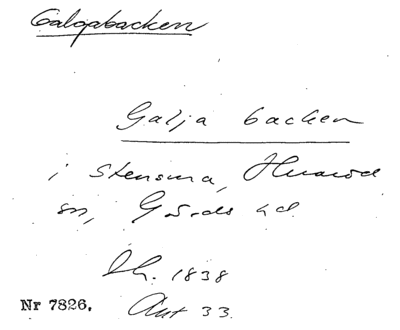 Galgabacken
Galja backen
i Stensma, Huaröd
sn, Gärds hd.
Lh. 1838
Nr 7826. Akt 33.